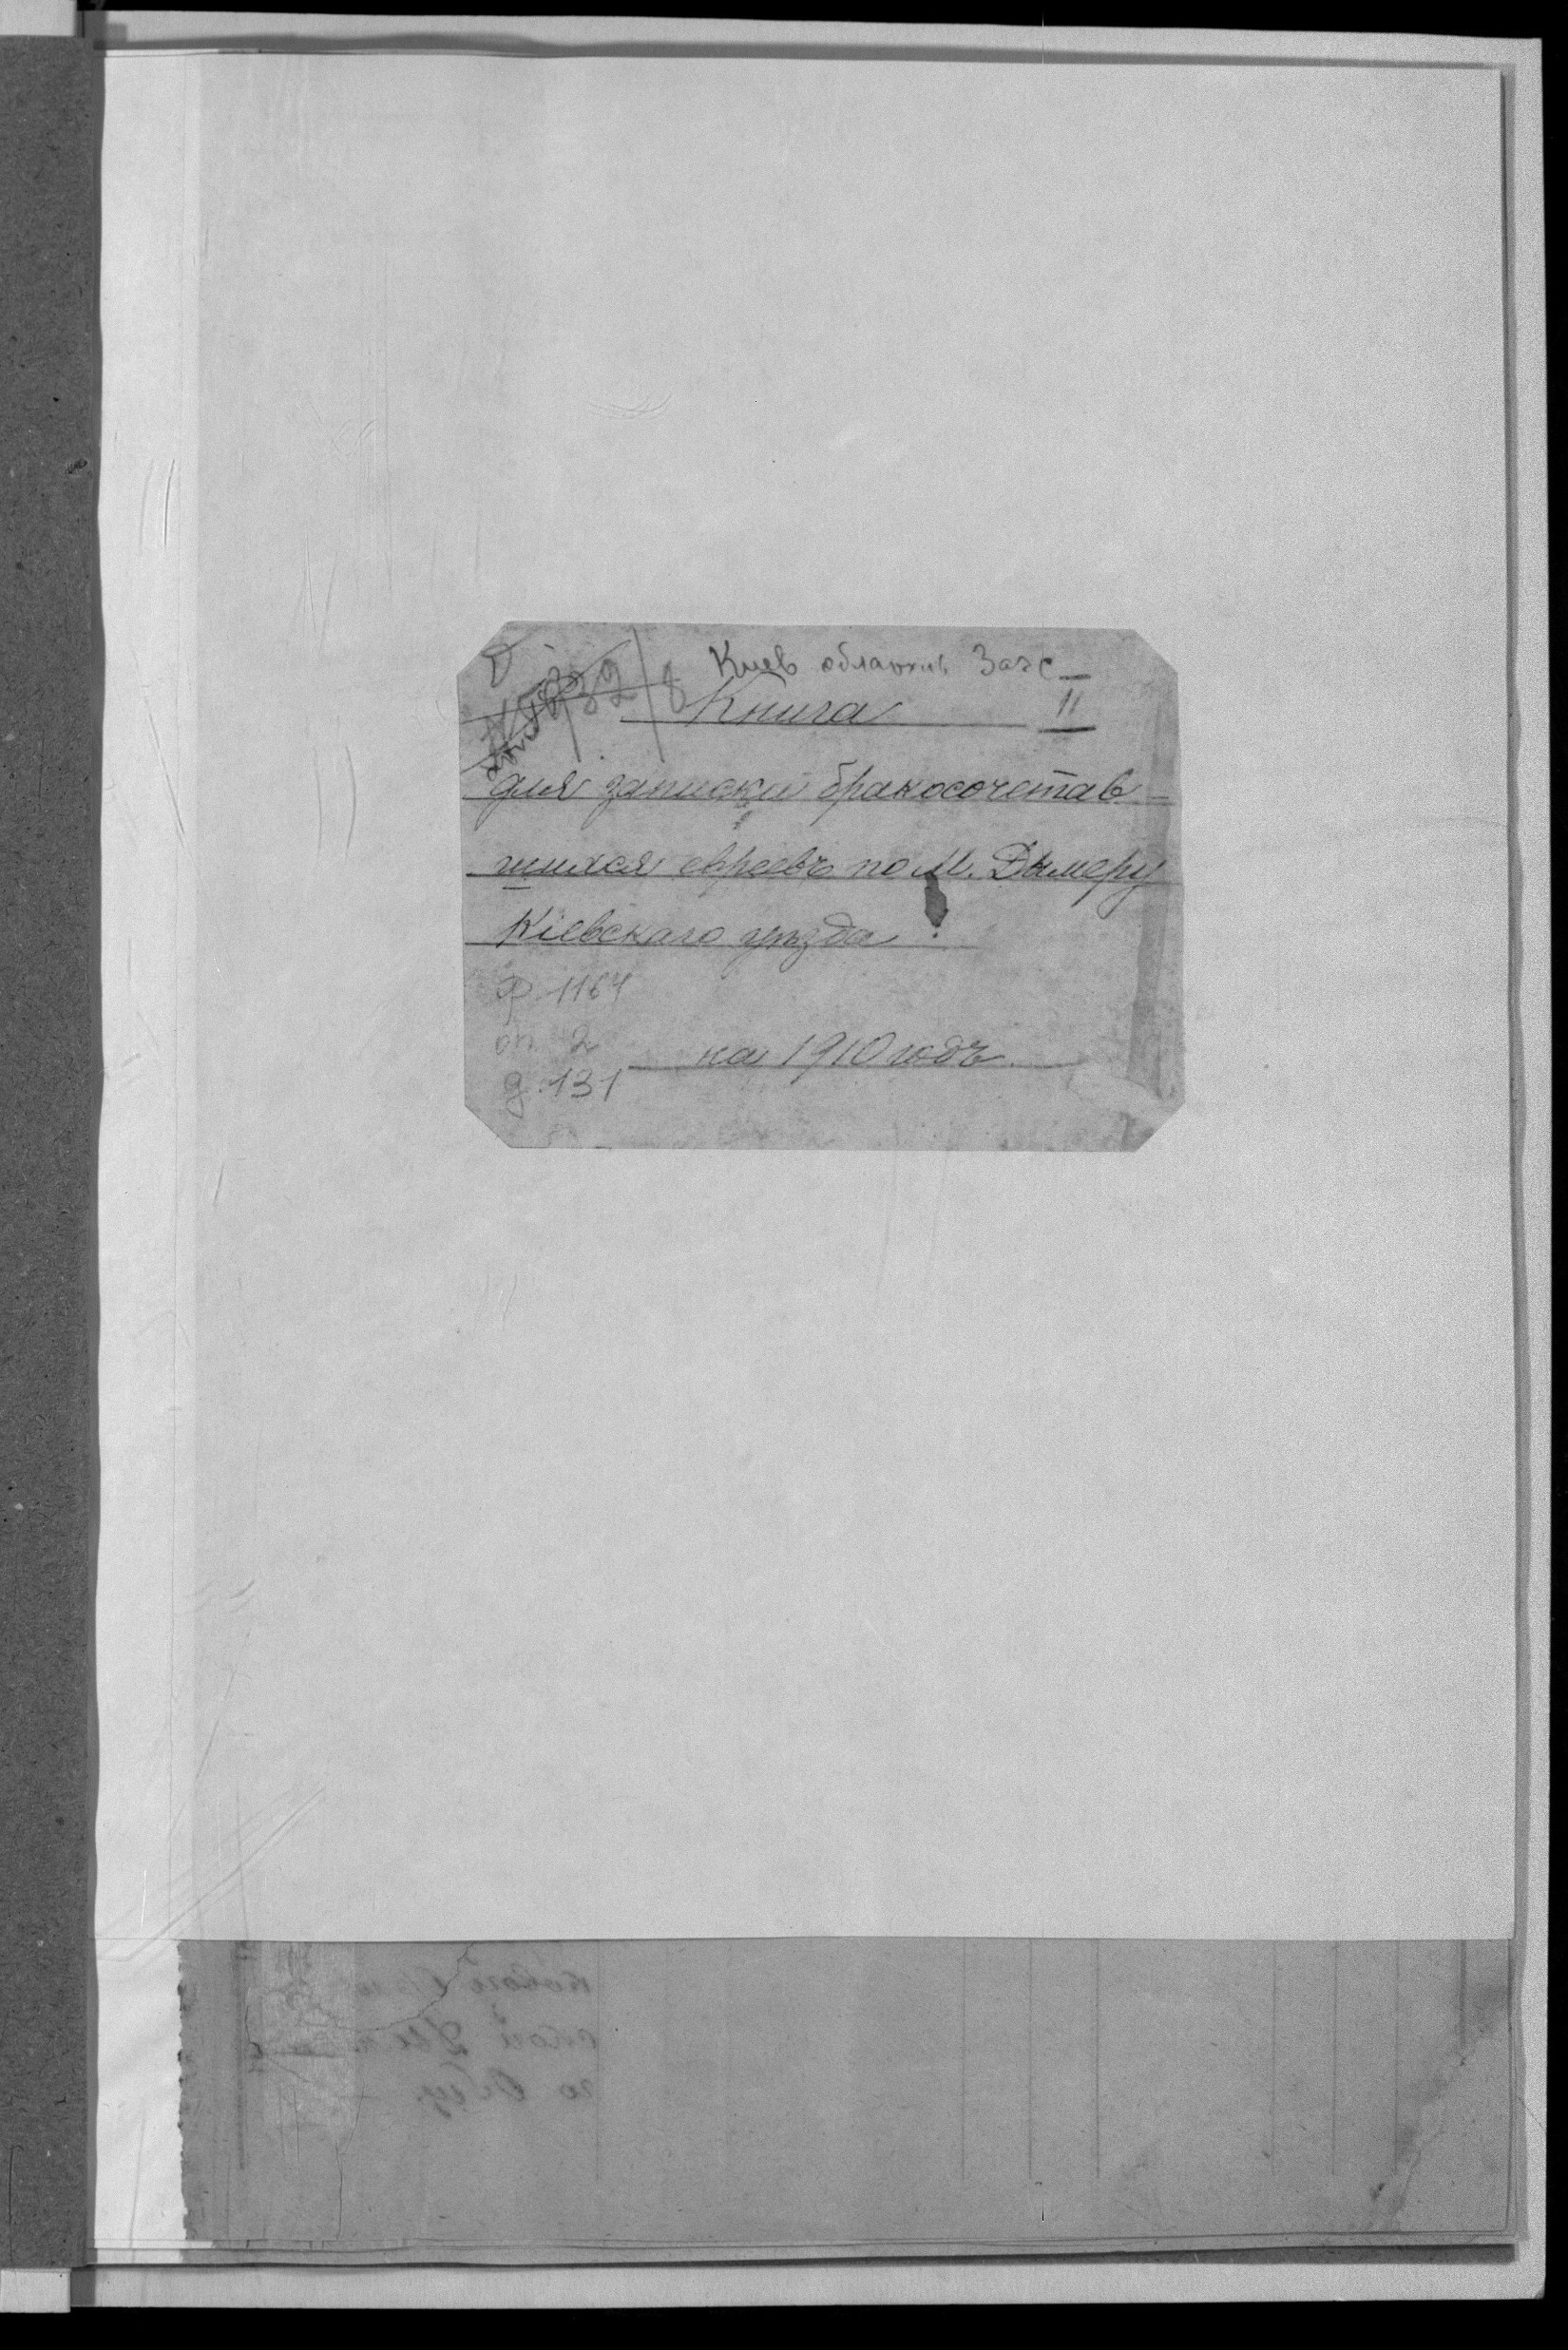 Киев облархив Загс
32/8
Книга II
для записки бракосочетав-
шихся евреевъ по м. Дымеру
Кіевскаго уѣзда
ф. 1164
оп. 2
на 1910 годъ
д. 131